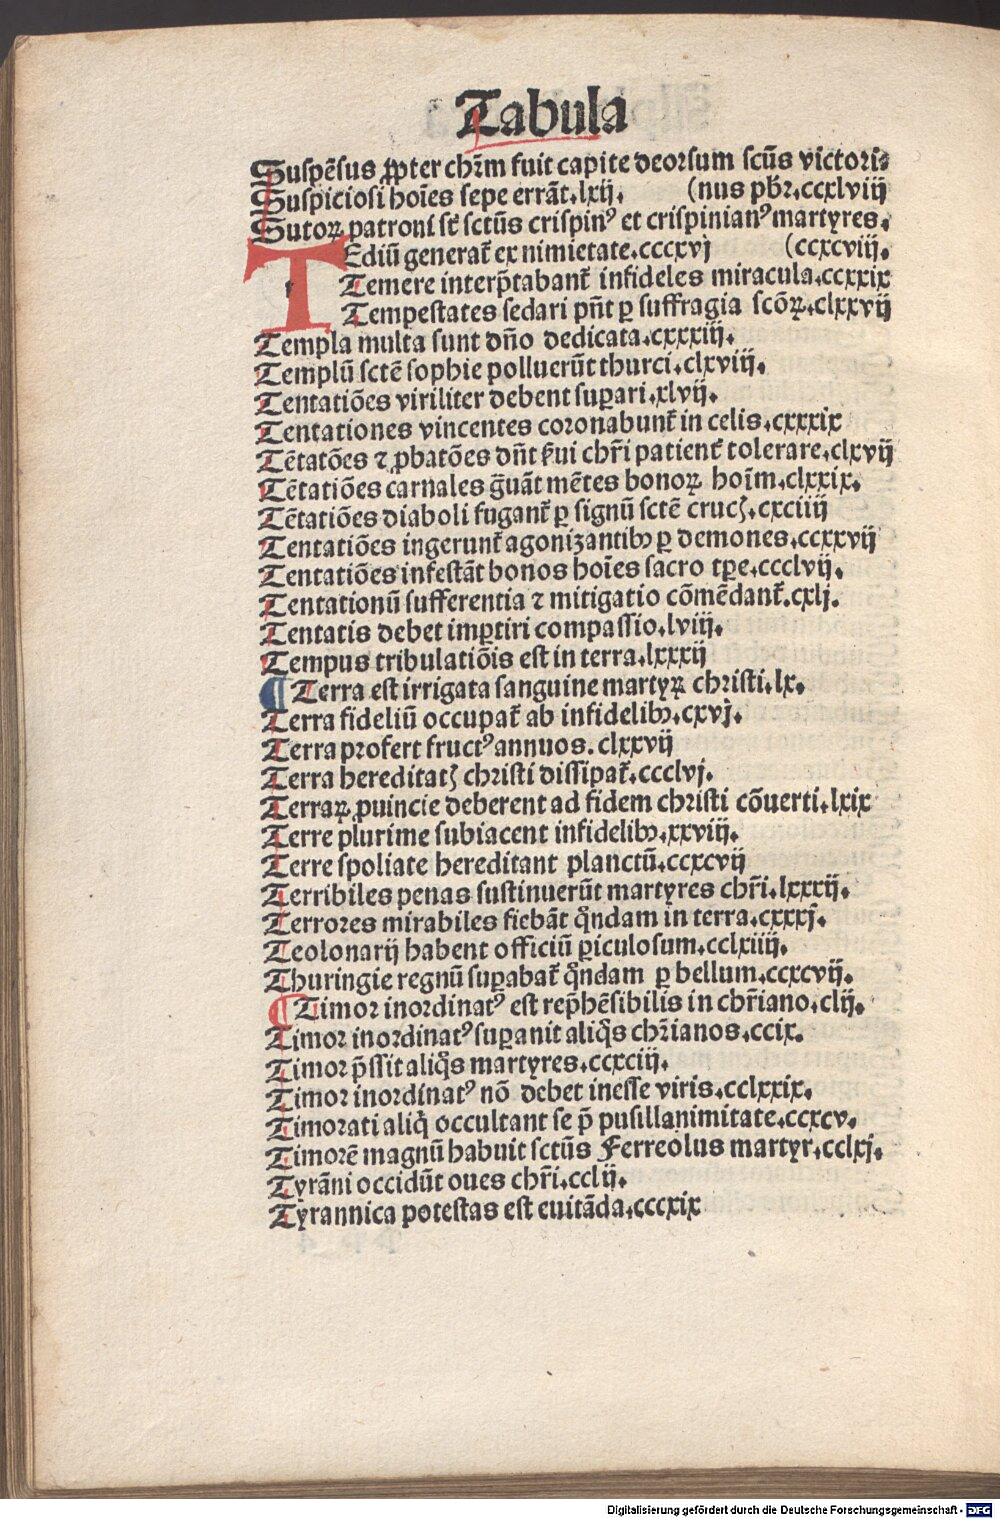 Tabula
Suspẽsus ꝓpter chr̃m fuit capite deorsum scũs victori⸗
Suspiciosi hoĩes sepe errãt.lxij. (nus pbr̃.ccxlviij
Sutoꝝ patroni st̃ sctũs crispinꝰ et crispinianꝰ martyres.
TEdiũ generat̃ ex nimietate.cccxvj (ccxcviij.
Temere interp̃tabant̃ infideles miracula.ccxxix
Tempestates sedari pñt ꝑ suffragia scõꝝ.clxxvij
Templa multa sunt dño dedicata.cxxxiij.
Templũ sctẽ sophie polluerũt thurci.clxviij.
Tentatiões viriliter debent suꝑari.xlvij.
Tentationes vincentes coronabunt̃ in celis.cxxxix
Tẽtatões ⁊ ꝓbatões dñt ẜui chr̃i patient̃ tolerare.clxvij
Tẽtatiões carnales g̃uãt mẽtes bonoꝝ hoĩm.clxxix.
Tẽtatiões diaboli fugant̃ ꝑ signũ sctẽ crucꝫ.cxciiij
Tentatiões ingerunt̃ agonizantibꝰ ꝑ demones.ccxxvij
Tentatiões infestãt bonos hoĩes sacro tꝑe.ccclvij.
Tentationũ sufferentia ⁊ mitigatio cõmẽdant̃.cxlj.
Tentatis debet imꝑtiri compassio.lviij.
Tempus tribulatiõis est in terra.lxxxij
¶ Terra est irrigata sanguine martyꝝ christi.lx.
Terra fideliũ occupat̃ ab infidelibꝰ.cxvj.
Terra profert fructꝰ annuos.clxxvij
Terra hereditatꝫ christi dissipat̃.ccclvj.
Terraꝝ ꝓuincie deberent ad fidem christi cõuerti.lxix
Terre plurime subiacent infidelibꝰ.xxviij.
Terre spoliate hereditant planctũ.ccxcvij
Terribiles penas sustinuerũt martyres chr̃i.lxxxij.
Terrores mirabiles fiebãt q̃ndam in terra.cxxxj.
Teolonarij habent officiũ ꝑiculosum.cclxiiij.
Thuringie regnũ suꝑabat̃ q̃ndam ꝑ bellum.ccxcvij.
¶ Timor inordinatꝰ est rep̃hẽsibilis in chr̃iano.clij.
Timor inordinatꝰ suꝑanit aliq̃s chr̃ianos.ccix.
Timor p̃ssit aliq̃s martyres.ccxciij.
Timor inordinatꝰ nõ debet inesse viris.cclxxix.
Timorati aliq̃ occultant se p̃ pusillanimitate.ccxcv.
Timorẽ magnũ habuit sctũs Ferreolus martyr.cclxj.
Tyrãni occidũt oues chr̃i.cclij.
Tyrannica potestas est euitãda.cccxix
Digitalisierung gefördert durch die Deutsche Forschungsgemeinschaft - DFG